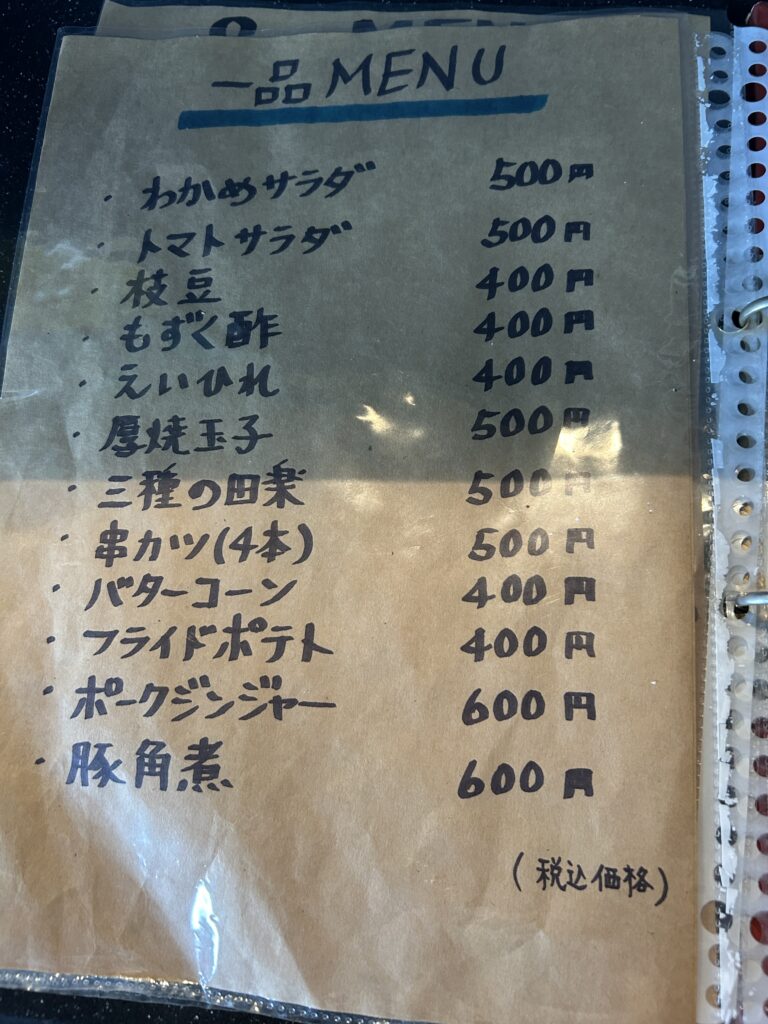 一品MENU
・わかめサラダ 500円
・トマトサラダ 500円
・枝豆 400円
・もずく酢 400円
・えいひれ 400円
・厚焼玉子 500円
・三種の田楽 500円
・串カツ(4本) 500円
・バターコーン 400円
・フライドポテト 400円
・ポークジンジャー 600円
・豚角煮 600円
(税込価格)